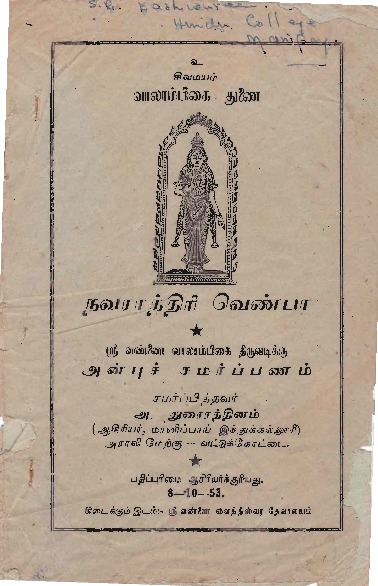 S. G.
Hindu College
Manipay
உ
சிவமயம்
வாலாம்பிகை துணை
நவராத்திரி வெண்பா
ஸ்ரீ வண்ணை வாலாம்பிகை திருவடிக்கு
அன்புச் சமர்ப்பணம்
சமர்ப்பித்தவர்
அ. துரைரத்தினம்
(ஆசிரியர், மானிப்பாய் இந்துக்கல்லூரி)
அராலி மேற்கு — வட்டுக்கோட்டை.
பதிப்புரிமை ஆசிரியர்க்குரியது.
8—10—53.
கிடைக்கும் இடம்:- ஸ்ரீ வண்ணை வைத்தீஸ்வர தேவாலயம்